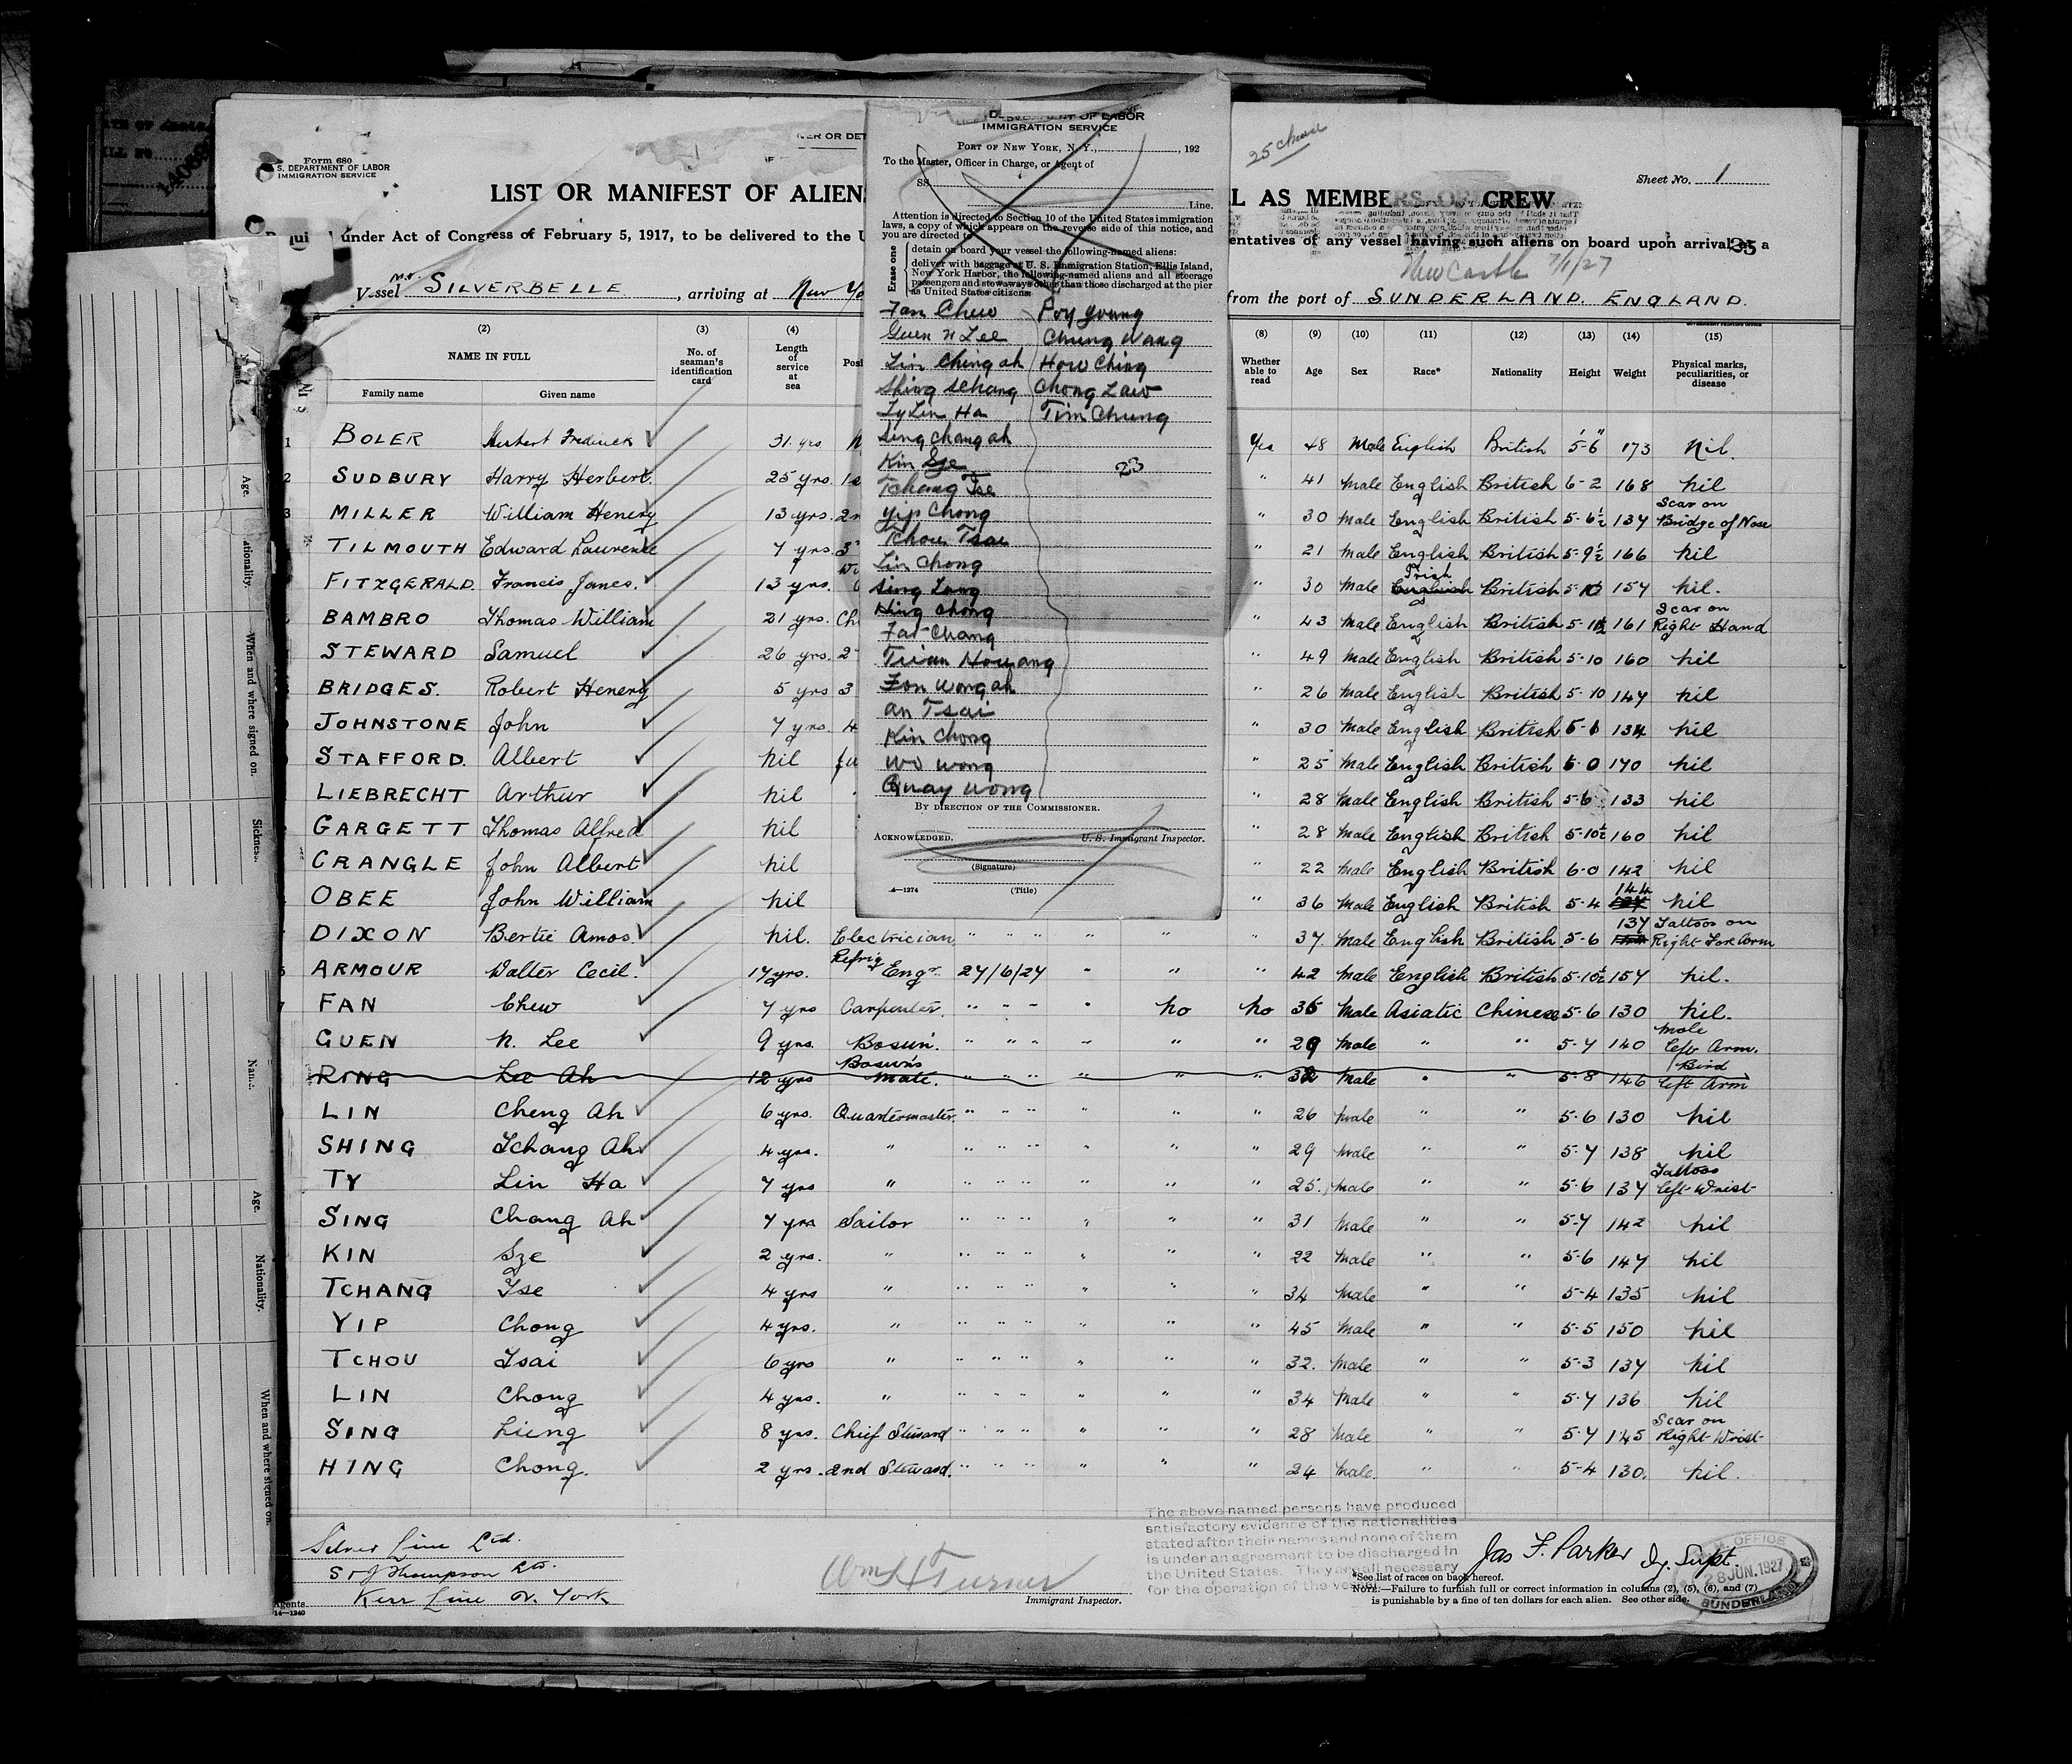 Form 680
S. DEPARTMENT OF LABOR
IMMIGRATION SERVICE
LIST OR MANIFEST OF ALIEN
L AS MEMBERS OF CREW
25 Chinese
Sheet No. 1
under Act of Congress of February 5, 1917, to be delivered to the U
entatives of any vessel having such aliens on board upon arrival
35
New Castle 7/1/27
Vessel SILVERBELLE, arriving at New Yo
from the port of SUNDERLAND. ENGLAND.
IMMIGRATION SERVICE
PORT OF NEW YORK, N. Y., 192
To the Master, Officer in Charge, or Agent of
SS.
Line.
Attention is directed to Section 10 of the United States immigration
laws, a copy of which appears on the reverse side of this notice, and
you are directed to
Erase one
detain on board your vessel the following-named aliens:
deliver with baggage at U. S. Immigration Station, Ellis Island,
New York Harbor, the following-named aliens and all steerage
passengers and stowaways other than those discharged at the pier
as United States citizens:
Fan Chew Poy Young
Guen N Lee Chung Wang
Lin Ching ah How Ching
Shing Schang Chong Law
Ty Lin Ha Tim Chung
Sing Chang ah
Kin Sze
23
Tchang Tse
Yip Chong
Tchou Tsai
Lin Chong
Sing Long
Hing Chong
Fat Chang
Tuian Houang
Fon Wong ah
an Tsai
Kin Chong
Wo Wong
Quay Wong
BY DIRECTION OF THE COMMISSIONER.
ACKNOWLEDGED.
U. S. Immigrant Inspector.
(Signature)
(Title)
4—1274
(2) (3) (4) (8) (9) (10) (11) (12) (13) (14) (15)
NAME IN FULL
Family name Given name
No. of seaman's identification card
Length of service at sea
Whether able to read
Age Sex Race* Nationality Height Weight
Physical marks, peculiarities, or disease
1 BOLER Herbert Fredrick 31 yrs Yes 48 Male English British 5-6 173 Nil.
2 SUDBURY Harry Herbert. 25 yrs. 1s " 41 Male English British 6-2 168 nil
3 MILLER William Henery 13 yrs. 2n " 30 Male English British 5-6½ 137 Scar on Bridge of Nose
TILMOUTH Edward Laurence 7 yrs. 3 " 21 Male English British 5-9½ 166 nil
FITZGERALD. Francis James. 13 yrs. " 30 Male English Irish British 5-10 157 nil.
BAMBRO Thomas William 21 yrs. Ch " 43 Male English British 161 Scar on Right Hand
STEWARD Samuel 26 yrs. 2 " 49 Male English British 5-10 160 nil
BRIDGES. Robert Henery 5 yrs 3 " 26 Male English British 5-10 147 nil
JOHNSTONE John 7 yrs. 4 " 30 Male English British 5-6 134 nil
STAFFORD. Albert nil " 25 Male English British 6-0 170 nil
LIEBRECHT Arthur nil " 28 Male English British 5-6 133 nil
GARGETT Thomas Alfred nil " 28 Male English British 5-10½ 160 nil
CRANGLE John Albert nil " 22 Male English British 6-0 142 nil
OBEE John William nil " 36 Male English British 5-4 144 nil
DIXON Bertie Amos. nil. Electrician " " " " " " 37 Male English British 5-6 137 Tattoos on Right Fore Arm
ARMOUR Walter Cecil. 17 yrs. Refrig Engr. 27/6/27 " " " 42 Male English British 5-10½ 157 nil.
FAN Chew 7 yrs Carpenter. " " " " no no 35 Male Asiatic Chinese 5-6 130 nil.
GUEN N. Lee 9 yrs. Bosun. " " " " " " 29 Male " " 5-7 140 Mole left Arm.
RING Lee Ah 12 yrs Bosun's Mate. " " " " " " 32 Male " " 5-8 146 Bird left Arm
LIN Cheng Ah 6 yrs. Quartermaster " " " " " " 26 Male " " 5-6 130 nil
SHING Tchang Ah 4 yrs. " " " " " " " 29 Male " " 5-7 138 nil
TY Lin Ha 7 yrs " " " " " " " 25. Male " " 5-6 137 Tattoos left Wrist
SING Chang Ah 7 yrs Sailor " " " " " " 31 Male " " 5-7 142 nil
KIN Sze 2 yrs. " " " " " " " 22 Male " " 5-6 147 nil
TCHANG Tse 4 yrs " " " " " " " 34 Male " " 5-4 135 nil
YIP Chong 4 yrs. " " " " " " " 45 Male " " 5-5 150 nil
TCHOU Tsai 6 yrs " " " " " " " 32. Male " " 5-3 137 nil
LIN Chong 4 yrs. " " " " " " " 34 Male " " 5-7 136 nil
SING Lieng 8 yrs. Chief Steward " " " " " " 28 Male " " 5-7 145 Scar on Right Wrist
HING Chong. 2 yrs. 2nd Steward. " " " " " " 24 Male. " " 5-4 130. nil.
The above named persons have produced
satisfactory evidence of the nationalities
stated after their names and none of them
is under an agreement to be discharged in
the United States. They are all necessary
for the operation of the vessel
Silver Line Ltd.
S & J Thompson Ltd.
Kerr Line N. York
Agents
14—1240
Wm H Turner
Immigrant Inspector.
Jas F. Parker Dy Supt.
OFFICE
28 JUN. 1927
SUNDERLAND
*See list of races on back hereof.
NOTE.—Failure to furnish full or correct information in columns (2), (5), (6), and (7)
is punishable by a fine of ten dollars for each alien. See other side.
Age.
Nationality.
When and where signed on.
Sickness.
Name.
Age.
Nationality.
When and where signed on.